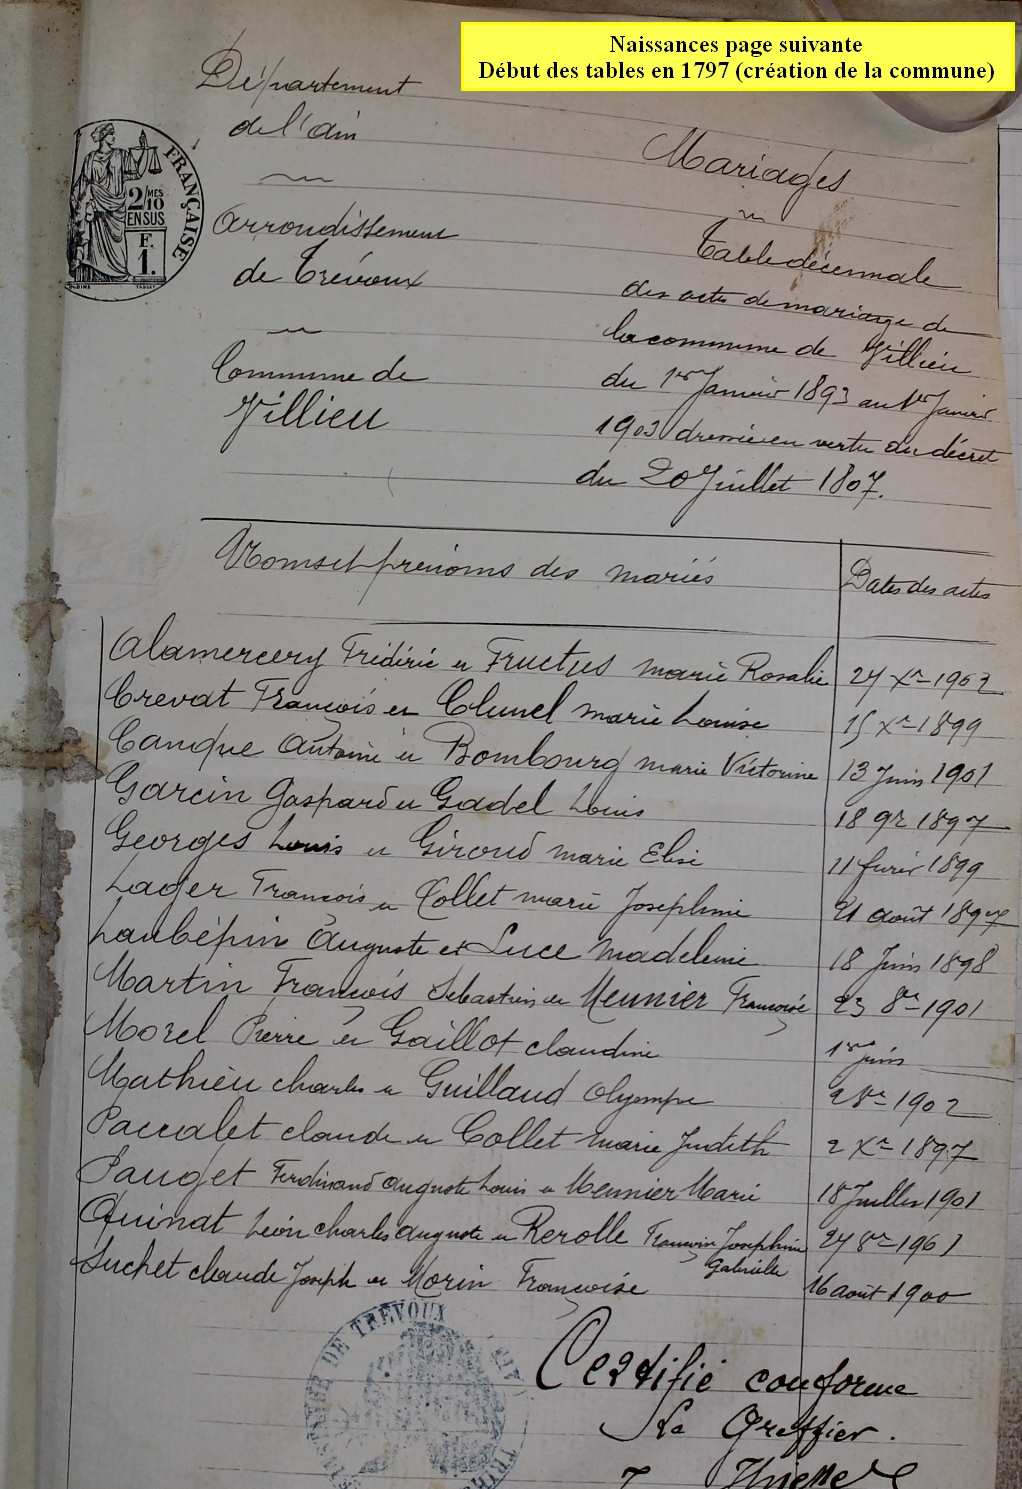 Naissances page suivante
Début des tables en 1797 (création de la commune)
Département
de l'Ain
Arrondissement
de Trévoux
Commune de
Villieu
FRANÇAISE
2/10 MES
EN SUS
F.
1.
Mariages
Table décennale
des actes de mariage de
la commune de Villieu
du 1er Janvier 1893 au 1er Janvier
1903 dressée en vertu du décret
du 20 Juillet 1807.
Noms et prénoms des mariés Dates des actes
Alamercery Frédéric et Fructus Marie Rosalie 27 Xre 1902
Crevat François et Clunel Marie Louise 15 Xre 1899
Canque Antoine et Bombourg Marie Victorine 13 Juin 1901
Garcin Gaspard et Gadel Louis 18 9re 1897
Georges Louis et Giroud Marie Elise 11 fevrier 1899
Lager François et Collet Marie Josephine 21 août 1897
Laubépin Auguste et Luce Madeleine 18 Juin 1898
Martin François Sébastien et Meunier Françoise 23 8re 1901
Morel Pierre et Gaillot Claudine 1er Juin
Mathieu Charles et Guillaud Olympe 2 8re 1902
Paccalet Claude et Collet Marie Judith 2 Xre 1897
Pauget Ferdinand Auguste Louis et Meunier Marie 18 Juillet 1901
Quinat Léon Charles Auguste et Rerolle Francoise Josephine Gabrielle 27 8re 1901
Suchet Claude Joseph et Morin Françoise 16 août 1900
DE TREVOUX
Certifié conforme
Le Greffier.